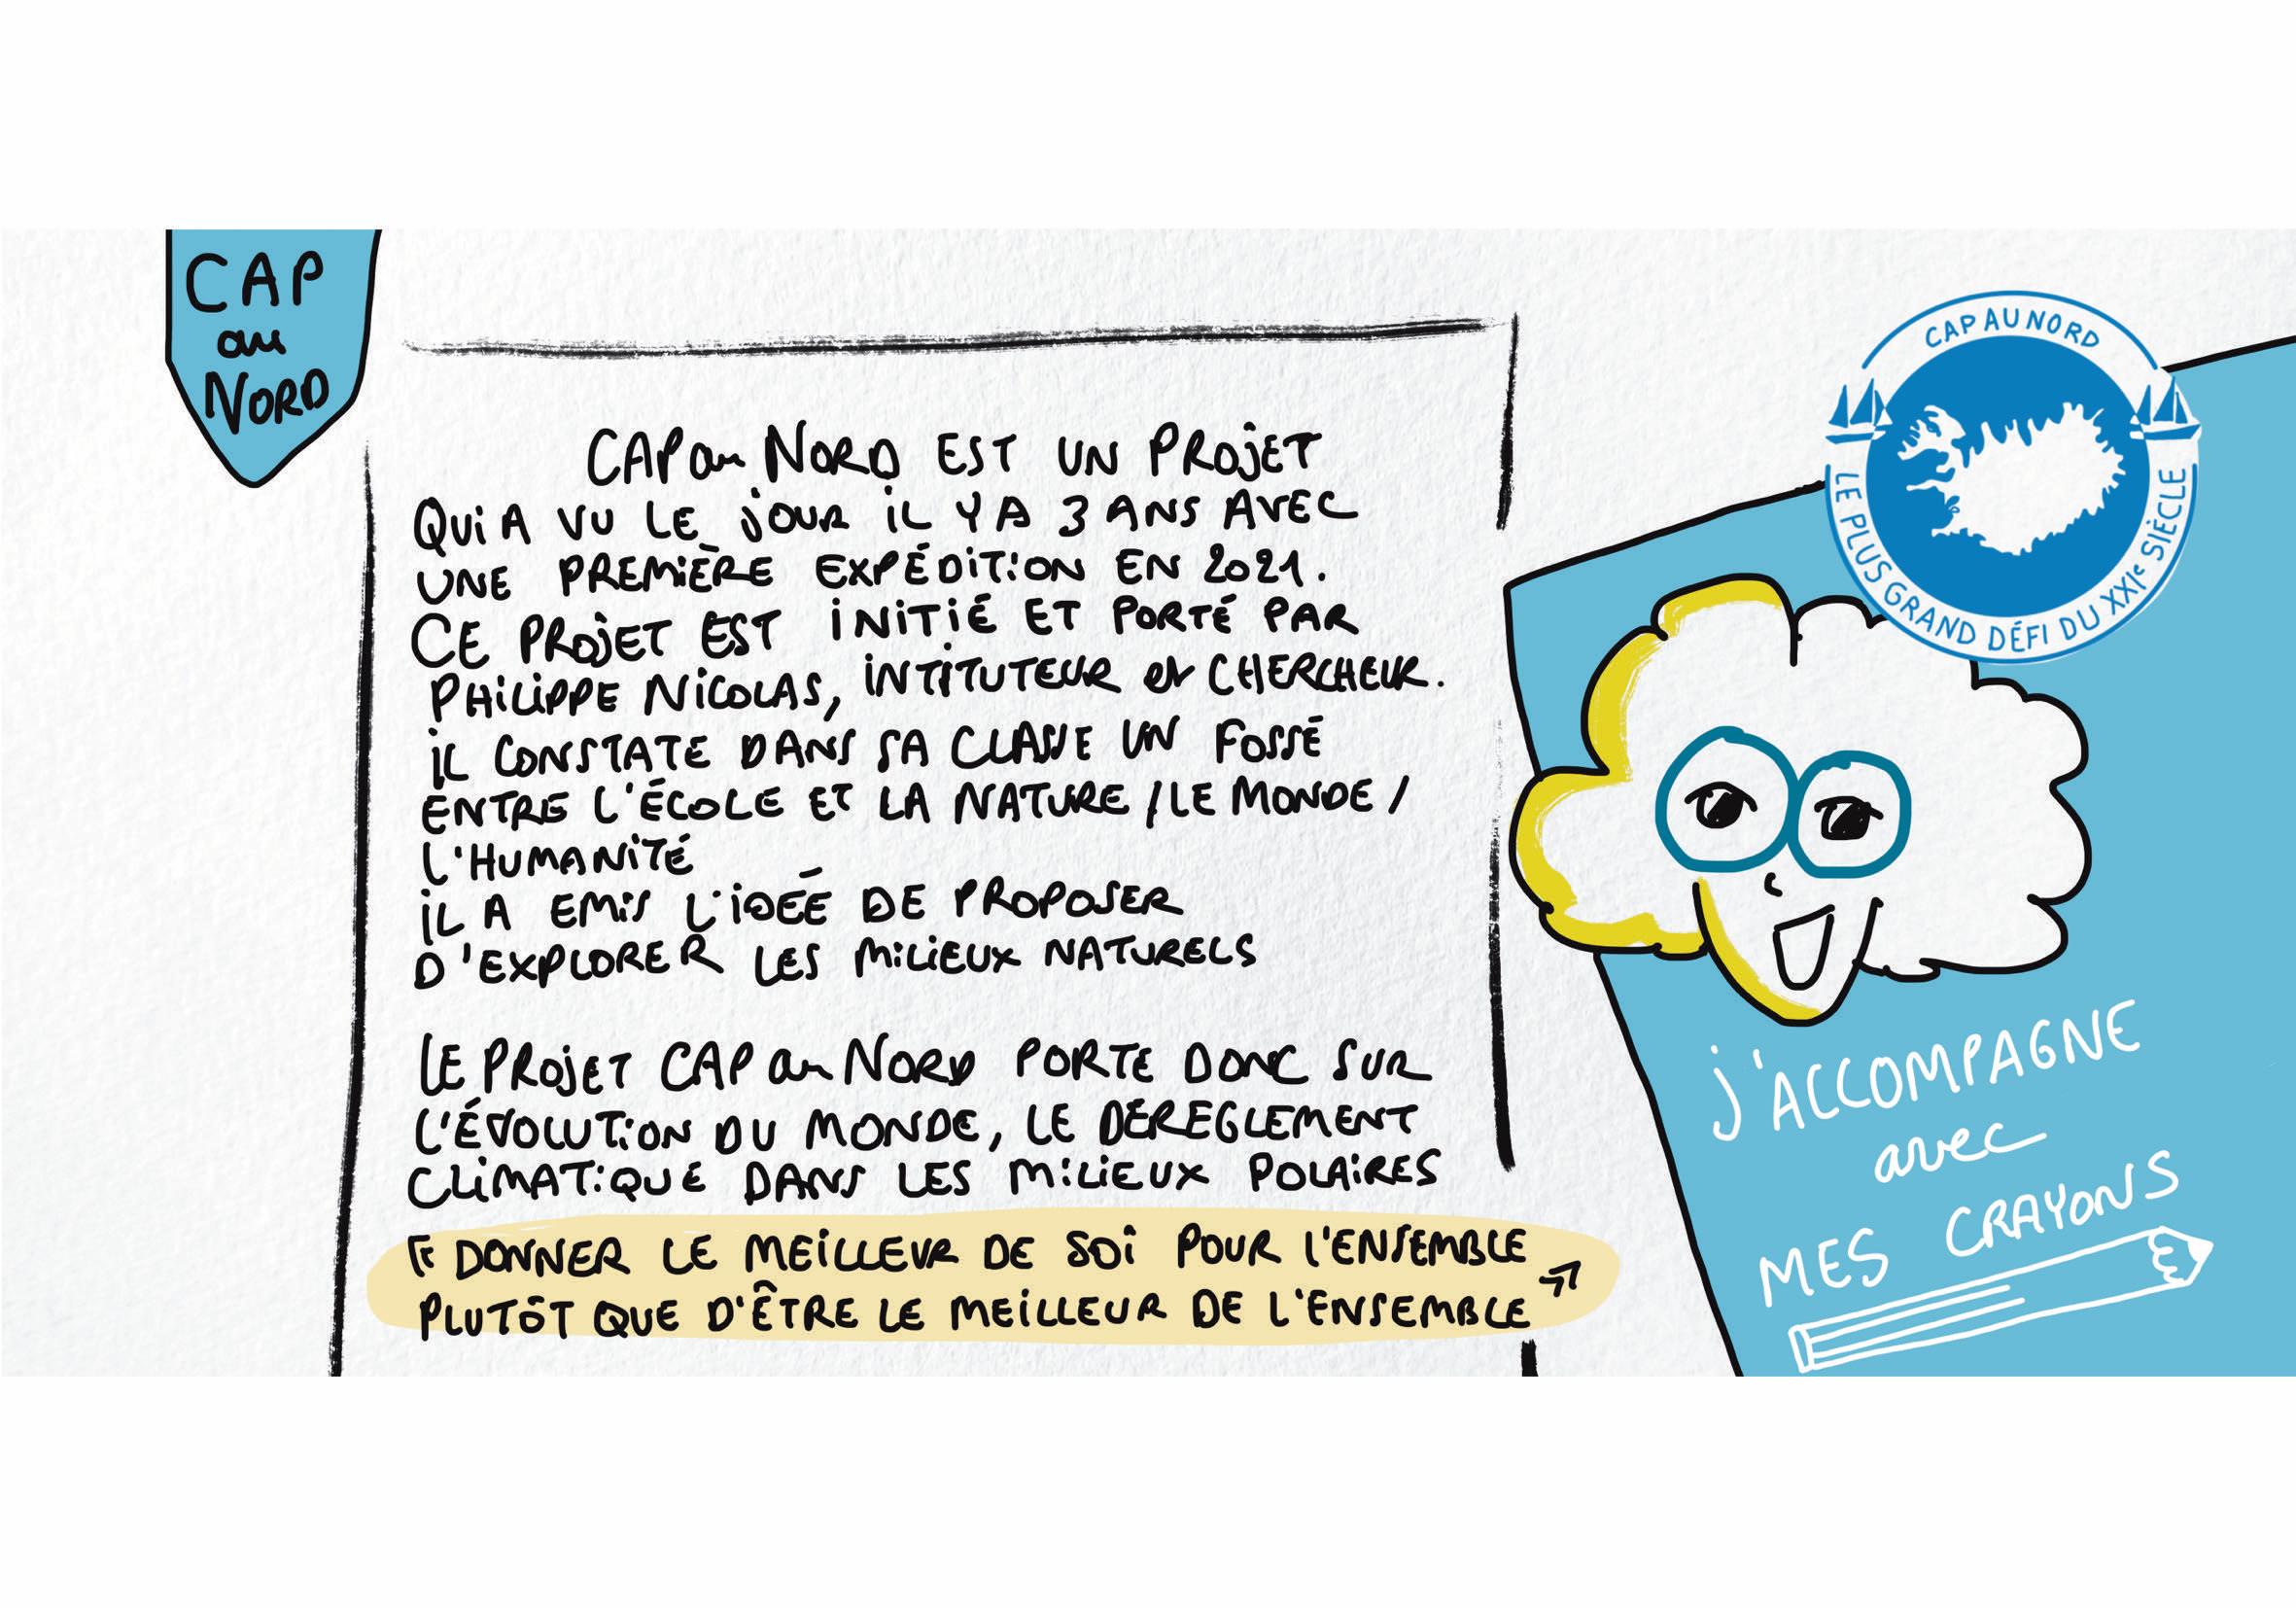 CAP
au
NORD
CAP au NORD EST UN PROJET
QUI A VU LE JOUR IL Y A 3 ANS AVEC
UNE PREMIÈRE EXPÉDITION EN 2021.
CE PROJET EST INITIÉ ET PORTÉ PAR
PHILIPPE NICOLAS, INTITUTEUR et CHERCHEUR.
IL CONSTATE DANS SA CLASSE UN FOSSÉ
ENTRE L'ÉCOLE ET LA NATURE / LE MONDE /
L'HUMANITÉ
IL A EMIS L'IDÉE DE PROPOSER
D'EXPLORER LES MILIEUX NATURELS
LE PROJET CAP au NORD PORTE DONC SUR
L'ÉVOLUTION DU MONDE, LE DEREGLEMENT
CLIMATIQUE DANS LES MILIEUX POLAIRES
« DONNER LE MEILLEUR DE SOI POUR L'ENSEMBLE
PLUTÔT QUE D'ÊTRE LE MEILLEUR DE L'ENSEMBLE »
CAP AU NORD
LE PLUS GRAND DÉFI DU XXIe SIÈCLE
J'ACCOMPAGNE
avec
MES CRAYONS